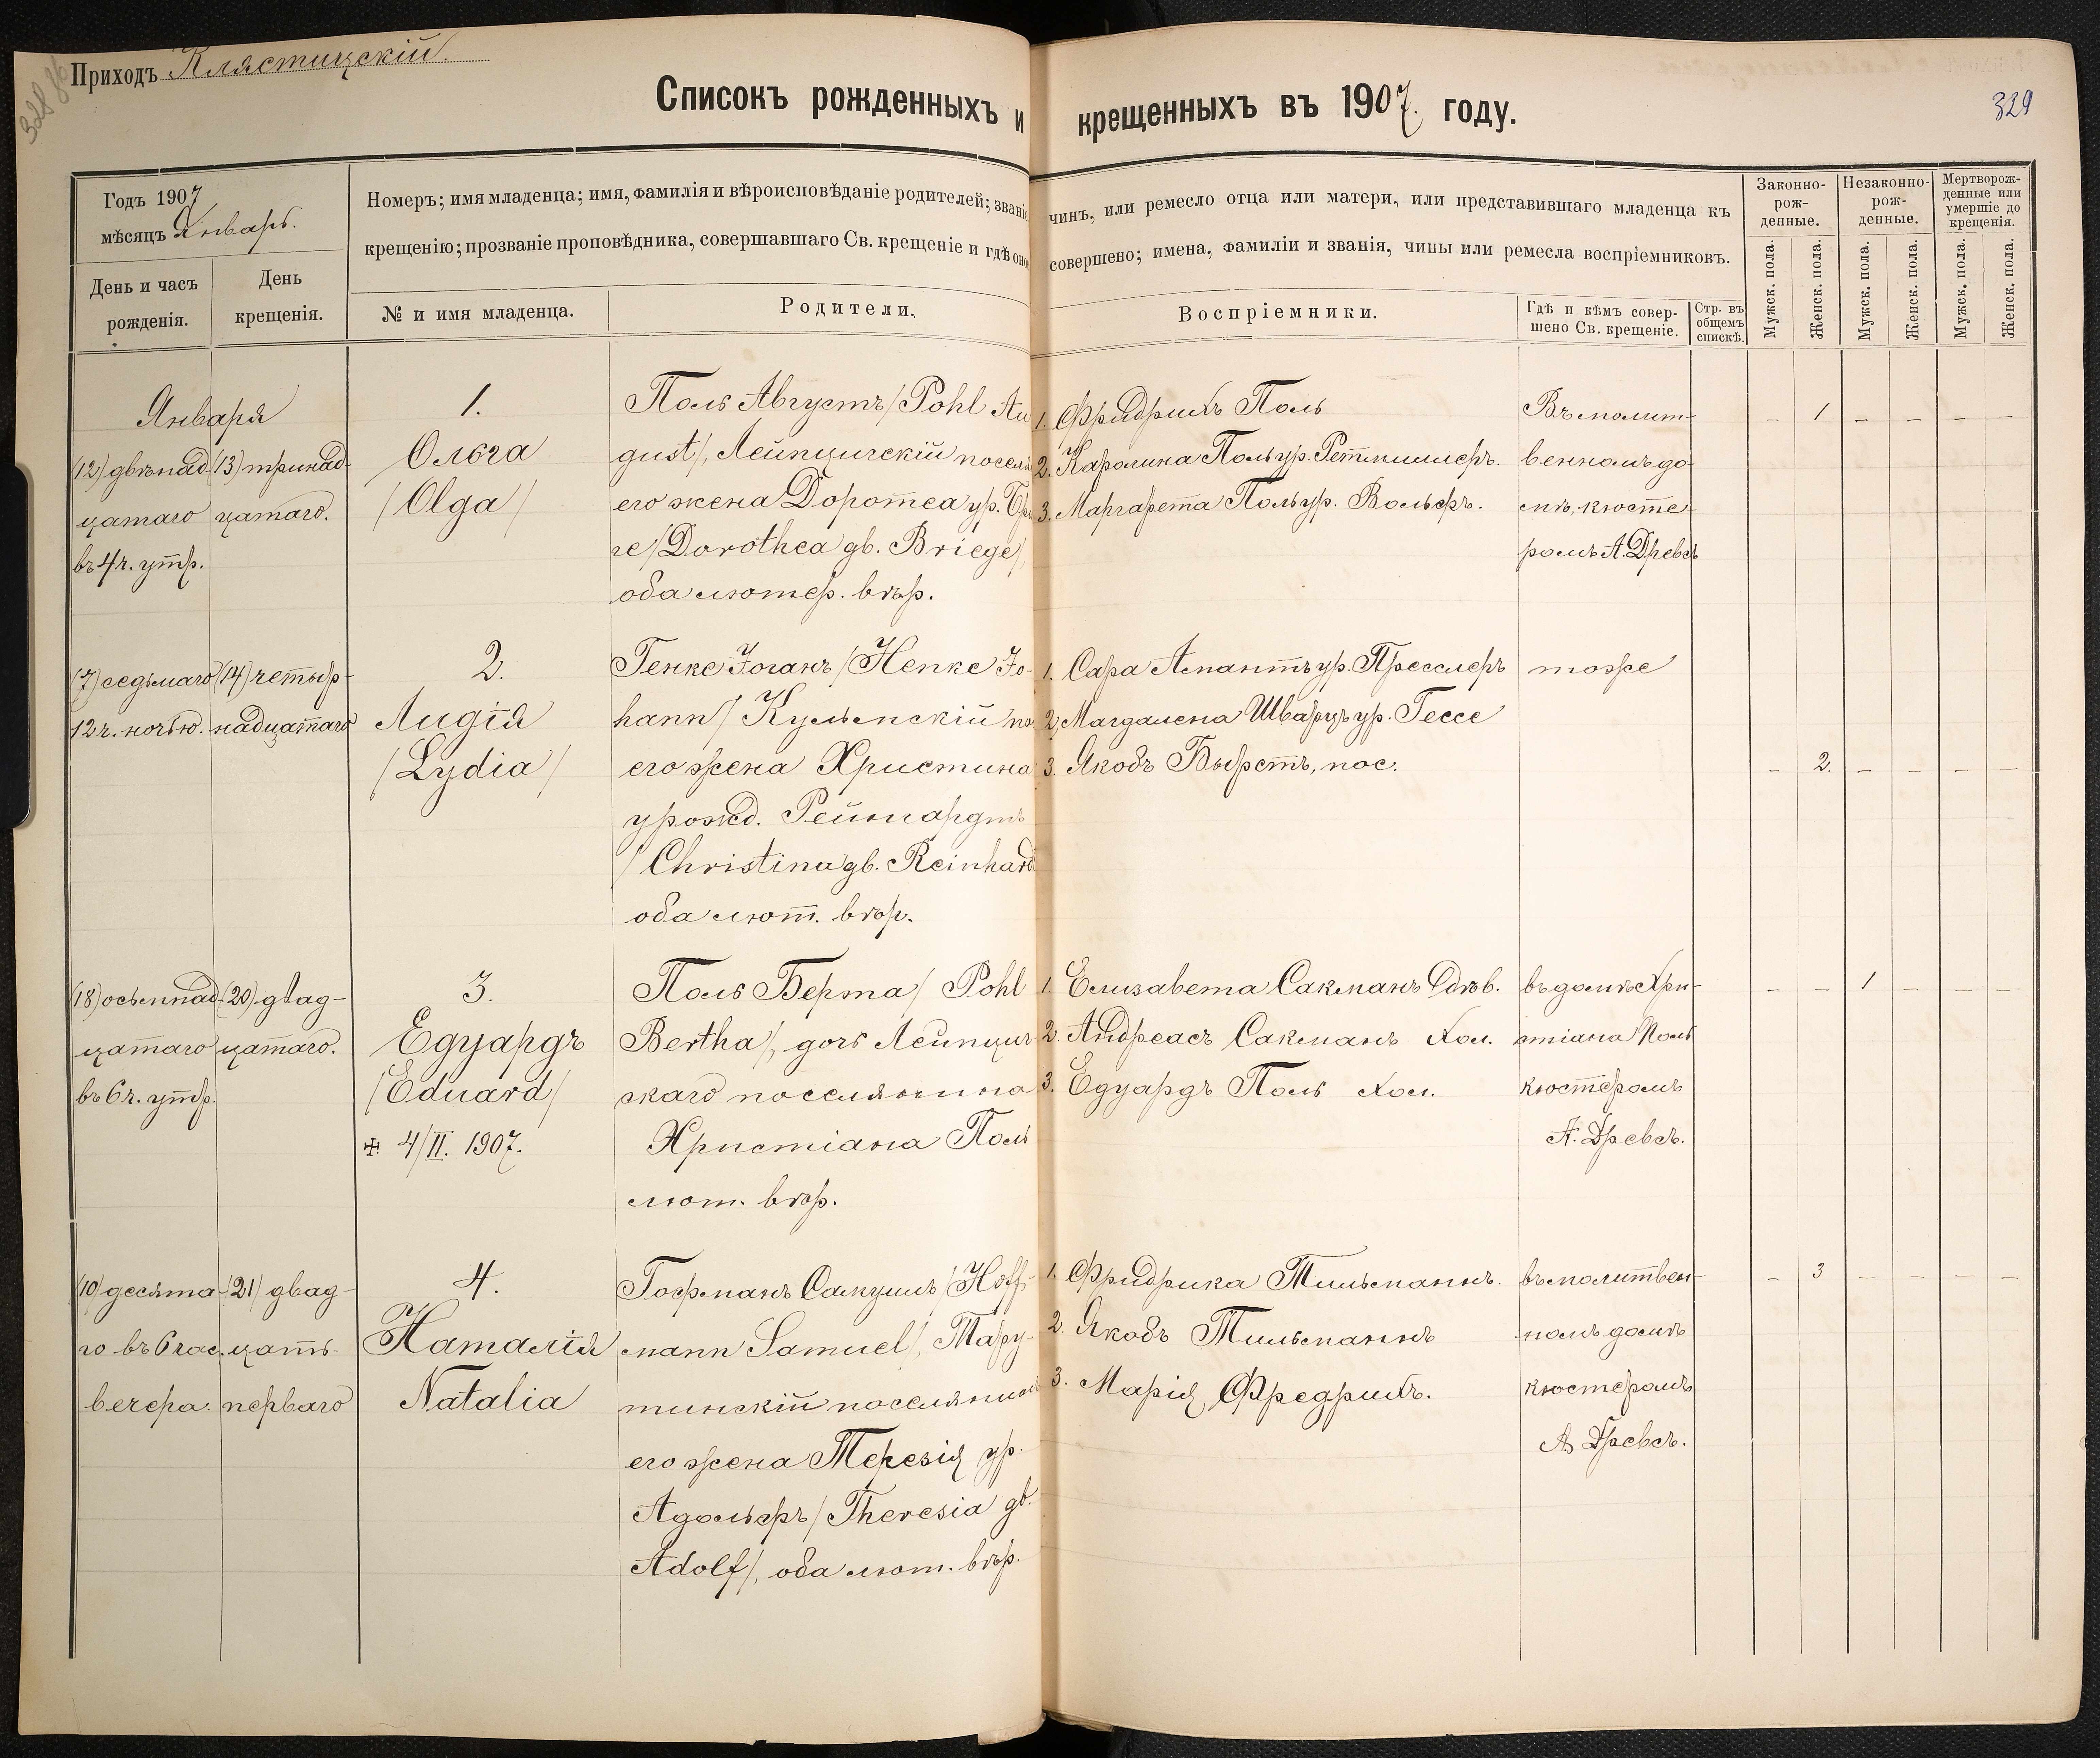 Приходъ Клястицскій.
328 об
Списокъ рожденныхъ и крещенныхъ въ 1907. году.
329
Годъ 1907
мѣсяцъ Январь.
День и часъ рожденія.
День крещенія.
Номеръ; имя младенца; имя, фамилія и вѣроисповѣданіе родителей; званіе
чинъ, или ремесло отца или матери, или представившаго младенца къ
крещенію; прозваніе проповѣдника, совершавшаго Св. крещеніе и гдѣ оно
совершено; имена, фамиліи и званія, чины или ремесла воспріемниковъ.
№ и имя младенца.
Родители.
Воспріемники.
Гдѣ и кѣмъ совер-
шено Св. крещеніе.
Стр. въ
общемъ
спискѣ.
Законно-
рож-
денные.
Незаконно-
рож-
денные.
Мертворож-
денные или
умершіе до
крещенія.
Мужск. пола.
Женск. пола.
Мужск. пола.
Женск. пола.
Мужск. пола.
Женск. пола.
Января
(12) двѣнад-
цатаго
въ 4 ч. утр.
(13) тринад-
цатаго.
1.
Ольга
/Olga/
Поль Августъ /Pohl Au
gust/, Лейпцигскій посел
его жена Доротеа ур. Бри
ге /Dorothea gb. Briege/,
оба лютер. вѣр.
1. Фридрихъ Поль
2. Каролина Поль ур. Реткишлеръ.
3. Маргарета Поль ур. Вольфъ.
Въ молит-
венномъ до-
мѣ, кюсте-
ромъ А. Древсъ
– 1 – – – –
(7) седьмаго
12 ч. ночью.
(14) четыр-
надцатаго
2.
Лидія
/Lydia/
Генке Іоганъ /Henke Jo-
hann/ Кульмскій по
его жена Христина
урожд. Рейнгардтъ
/Christina gb. Reinhard
оба лют. вѣр.
1. Сара Амантъ ур. Пресслеръ
2. Магдалена Шварцъ ур. Гессе
3. Якобъ Вырстъ, пос.
тоже
– 2. – – – –
(18) осьмнад-
цатаго
въ 6 ч. утр.
(20) двад-
цатаго.
3.
Едуардъ
/Eduard/
✠ 4/II. 1907.
Поль Берта / Pohl
Bertha/, дочь Лейпциг
скаго поселянина
Христіана Поль
лют. вѣр.
1. Елизавета Сакманъ Дѣв.
2. Андреасъ Сакманъ Хол.
3. Едуардъ Поль Хол.
въ домѣ Хри-
стіана Поль
кюстеромъ
А. Древсъ.
– – 1 – – –
(10) десята-
го въ 6 час.
вечера.
(21) двад-
цать
перваго
4.
Наталія
Natalia
Гофманъ Самуилъ /Hoff-
mann Samuel/, Тару-
тинскій поселянинъ
его жена Терезія ур.
Адольфъ /Theresia gb.
Adolf/, оба лют. вѣр.
1. Фридрика Тильманнъ.
2. Якобъ Тильманнъ
3. Марія Фредрихъ.
въ молитвен-
номъ домѣ
кюстеромъ
А Древсъ.
– 3 – – – –